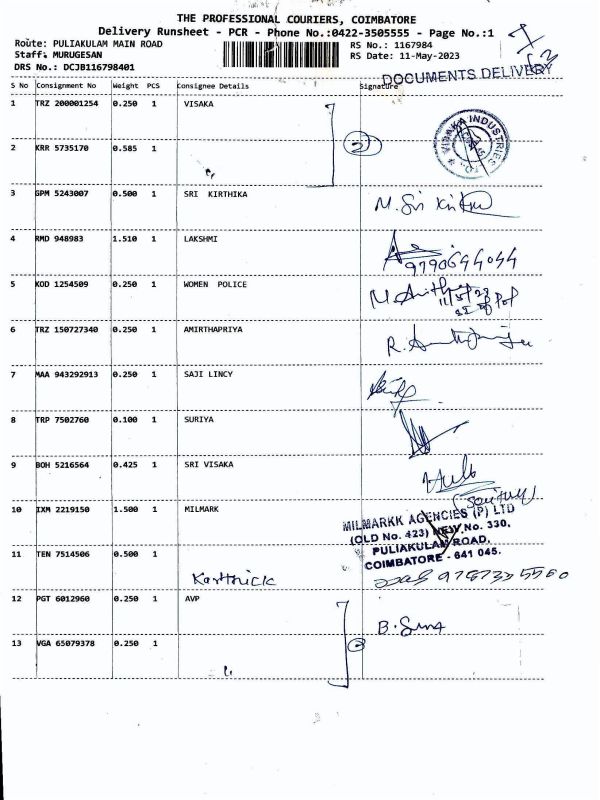 THE PROFESSIONAL COURIERS, COIMBATORE
Delivery Runsheet - PCR - Phone No.:0422-3505555 - Page No.:1
Route: PULIAKULAM MAIN ROAD
RS No.: 1167984
Staff: MURUGESAN
RS Date: 11-May-2023
DRS No.: DCJB116798401
DOCUMENTS DELIVERY
S No Consignment No Weight PCS Consignee Details Signature
1 TRZ 200001254 0.250 1 VISAKA
VISAKA INDUSTRIES
2 KRR 5735170 0.585 1
2
3 GPM 5243007 0.500 1 SRI KIRTHIKA
4 RMD 948983 1.510 1 LAKSHMI
9790644044
5 KOD 1254509 0.250 1 WOMEN POLICE
6 TRZ 150727340 0.250 1 AMIRTHAPRIYA
7 MAA 943292913 0.250 1 SAJI LINCY
8 TRP 7502760 0.100 1 SURIYA
9 BOH 5216564 0.425 1 SRI VISAKA
10 IXM 2219150 1.500 1 MILMARK
MILMARKK AGENCIES (P) LTD
(OLD No. 423) NEW No. 330,
PULIAKULAM ROAD,
COIMBATORE - 641 045.
11 TEN 7514506 0.500 1
Karthick
12 PGT 6012960 0.250 1 AVP
13 VGA 65079378 0.250 1